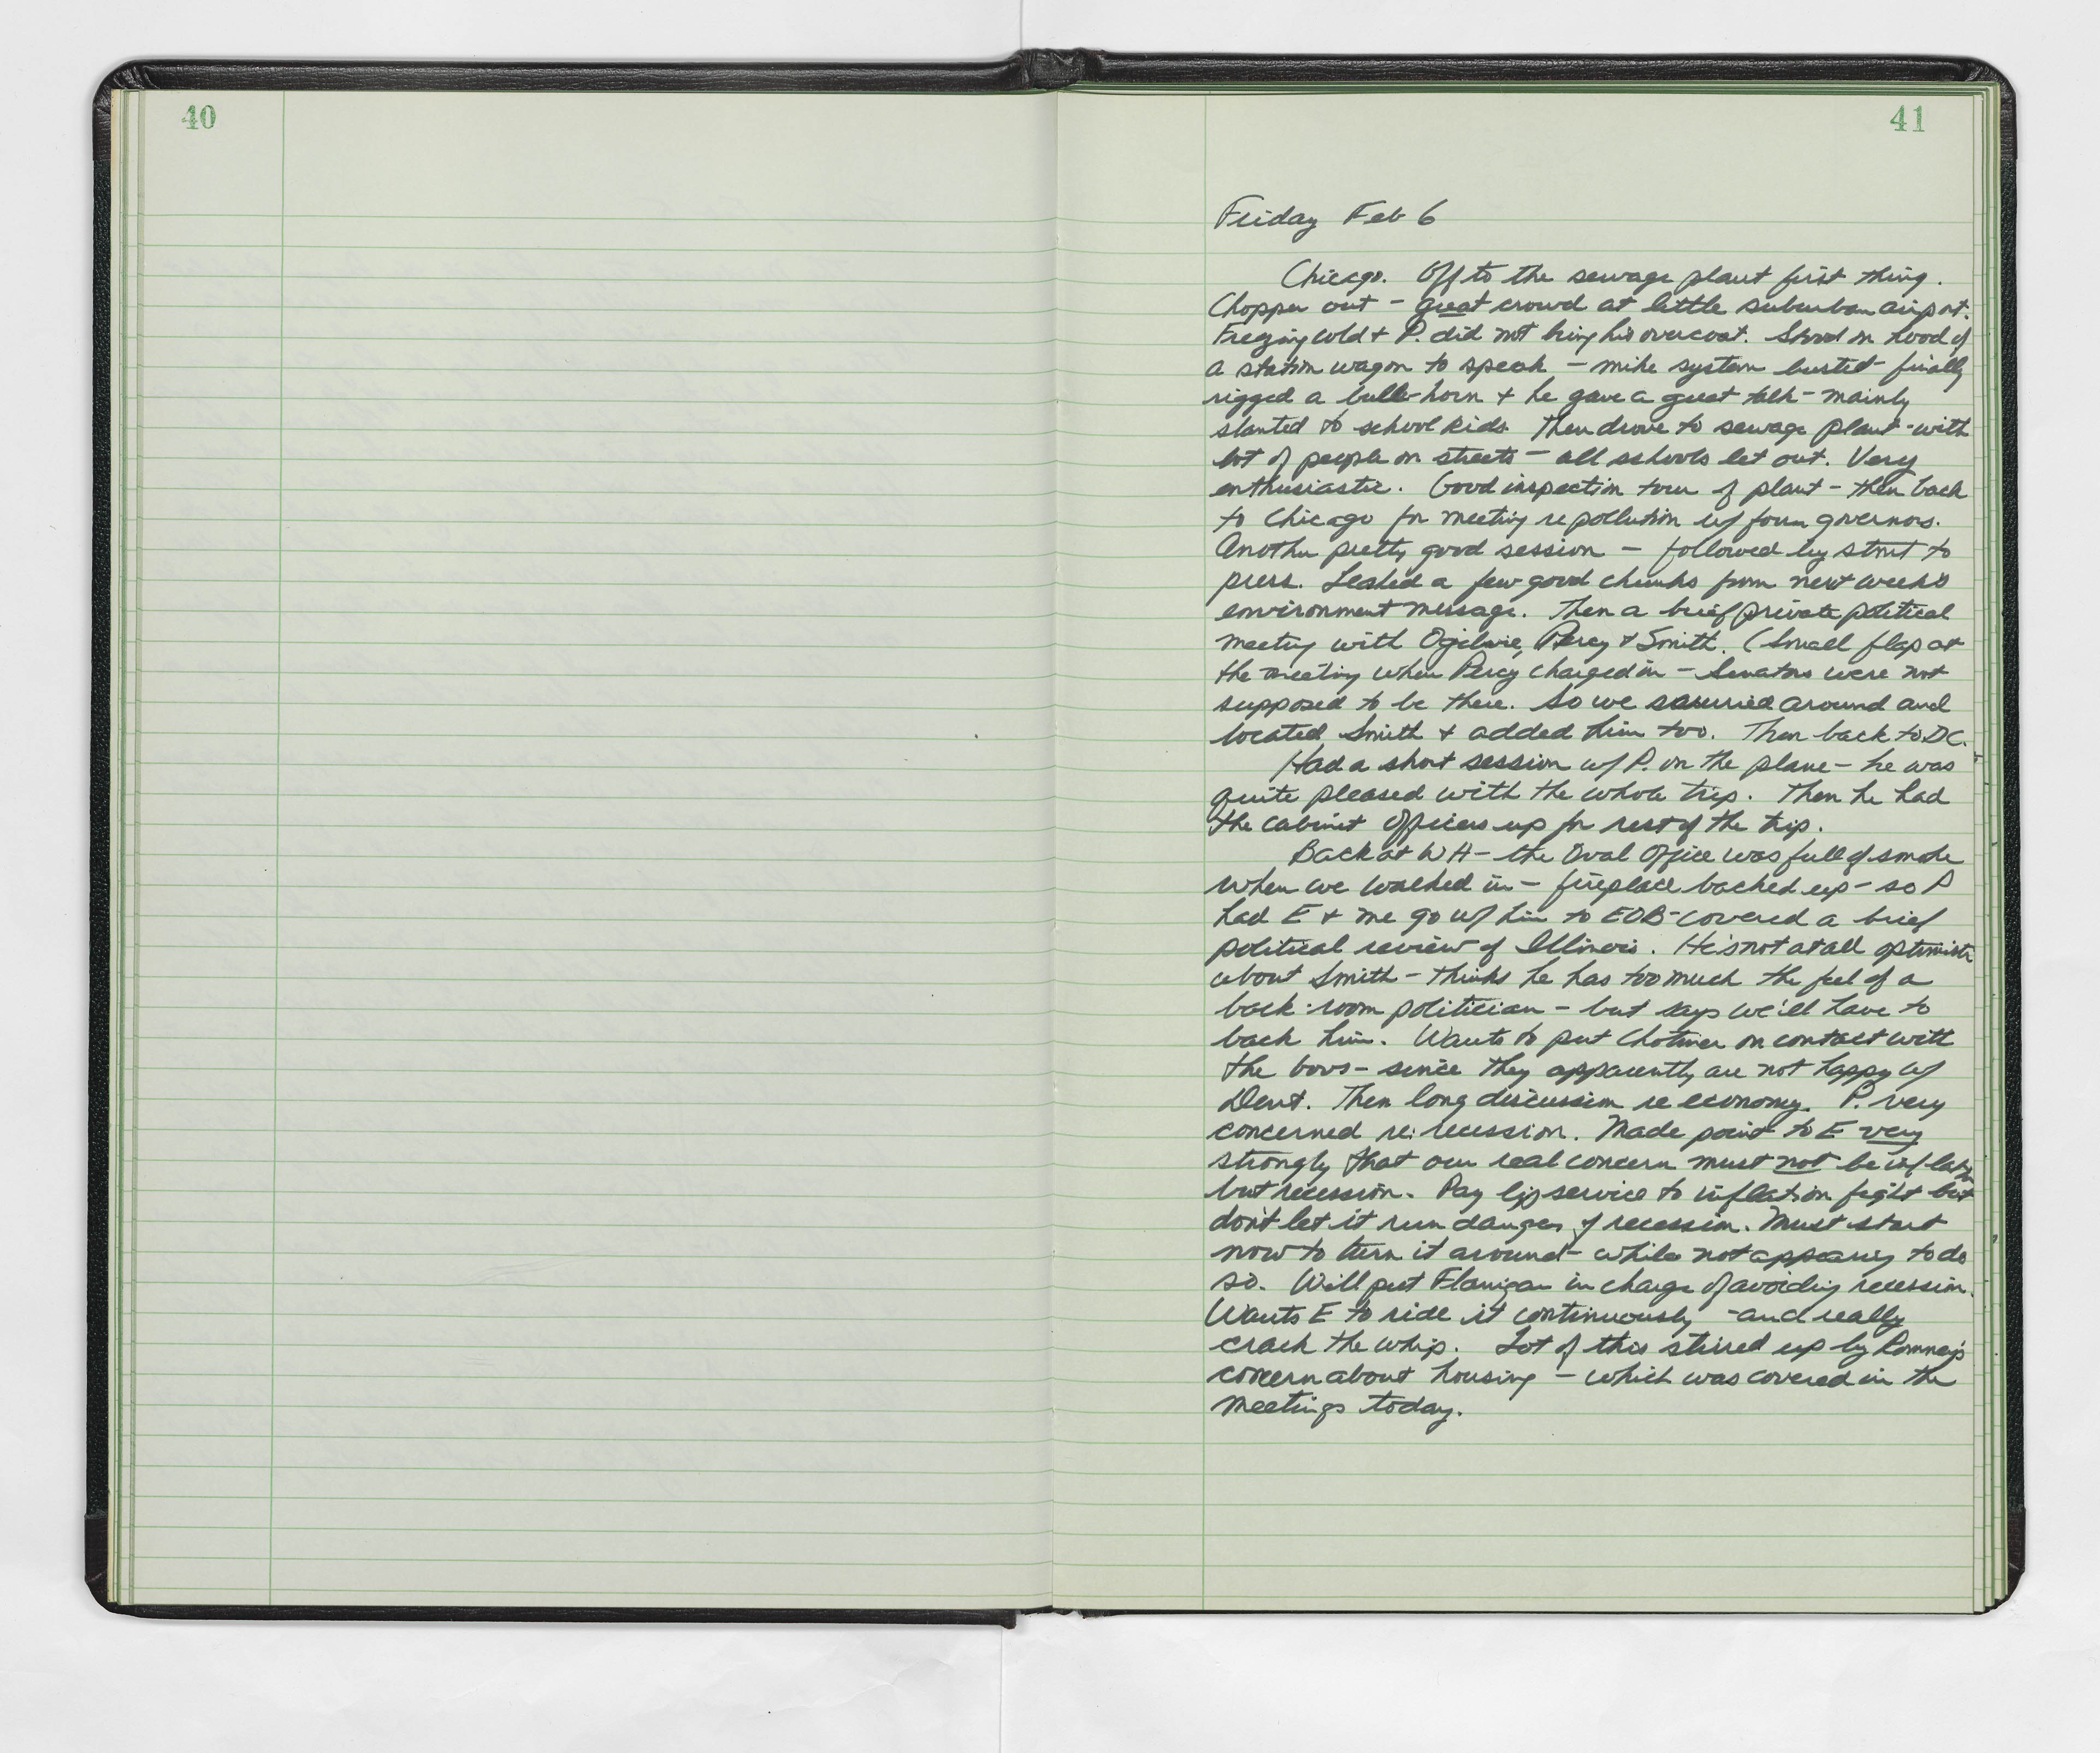 40
41
Friday Feb 6
Chicago. Off to the sewage plant first thing.
Chopper out – great crowd at little suburban airport.
Freezing cold + P. did not bring his overcoat. Stood on hood of
a station wagon to speak – mike system busted – finally
rigged a bull-horn + he gave a great talk – mainly
slanted to school kids. Then drove to sewage plant – with
lot of people on streets – all schools let out. Very
enthusiastic. Good inspection tour of plant – then back
to Chicago for meeting re pollution w/ four governors.
Another pretty good session – followed by stmt to
press. Leaked a few good chunks from next week's
environment message. Then a brief private political
meeting with Ogilvie, Percy & Smith. (Small flap at
the meeting when Percy charged in – Senators were not
supposed to be there. So we scurried around and
located Smith + added him too. Then back to DC.
Had a short session w/ P. on the plane – he was
quite pleased with the whole trip. Then he had
the cabinet officers up for rest of the trip.
Back at WH – the Oval Office was full of smoke
when we walked in – fireplace backed up – so P
had E + me go w/ him to EOB – covered a brief
political review of Illinois. He's not at all optimistic
about Smith – thinks he has too much the feel of a
back-room politician – but says we'll have to
back him. Wants to put Chotiner on contact with
the Govs – since they apparently are not happy w/
Dent. Then long discussion re economy. P. very
concerned re: recession. Made point to E very
strongly that our real concern must not be inflation
but recession. Pay lip service to inflation fight but
don't let it run danger of recession. Must start
now to turn it around – while not appearing to do
so. Will put Flanigan in charge of avoiding recession.
Wants E to ride it continuously – and really
crack the whip. Lot of this stirred up by Romney's
concern about housing – which was covered in the
meetings today.